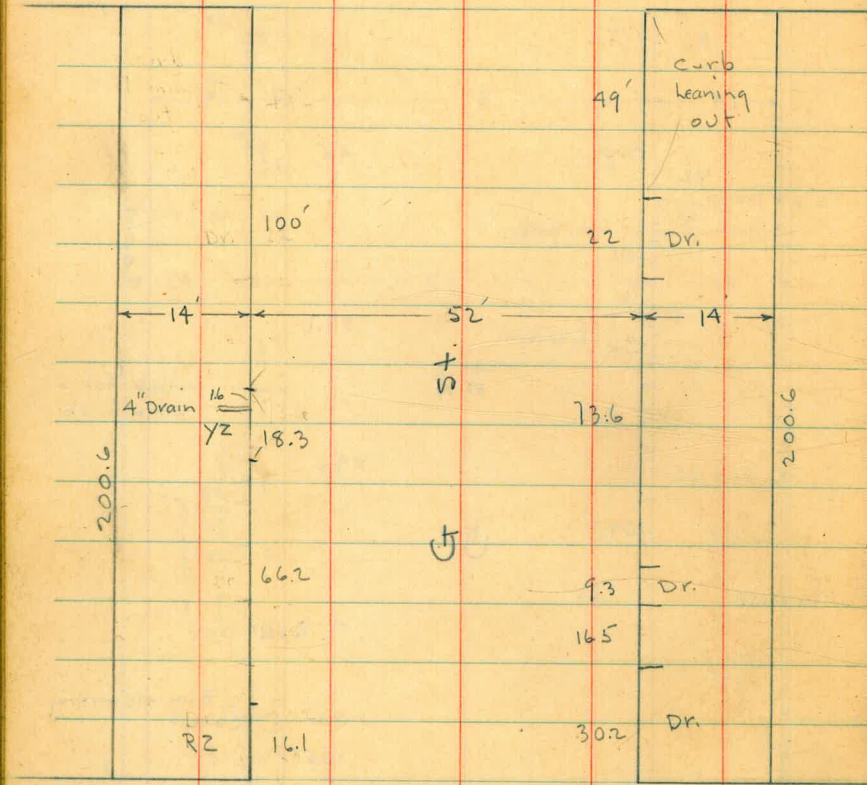 curb
Leaning
out
49'
100'
22 Dr.
14' 52' 14
St.
1.6
4" Drain
Y2
18.3
73.6
200.6
200.6
G
66.2
9.3 Dr.
16.5
R2 16.1
30.2 Dr.